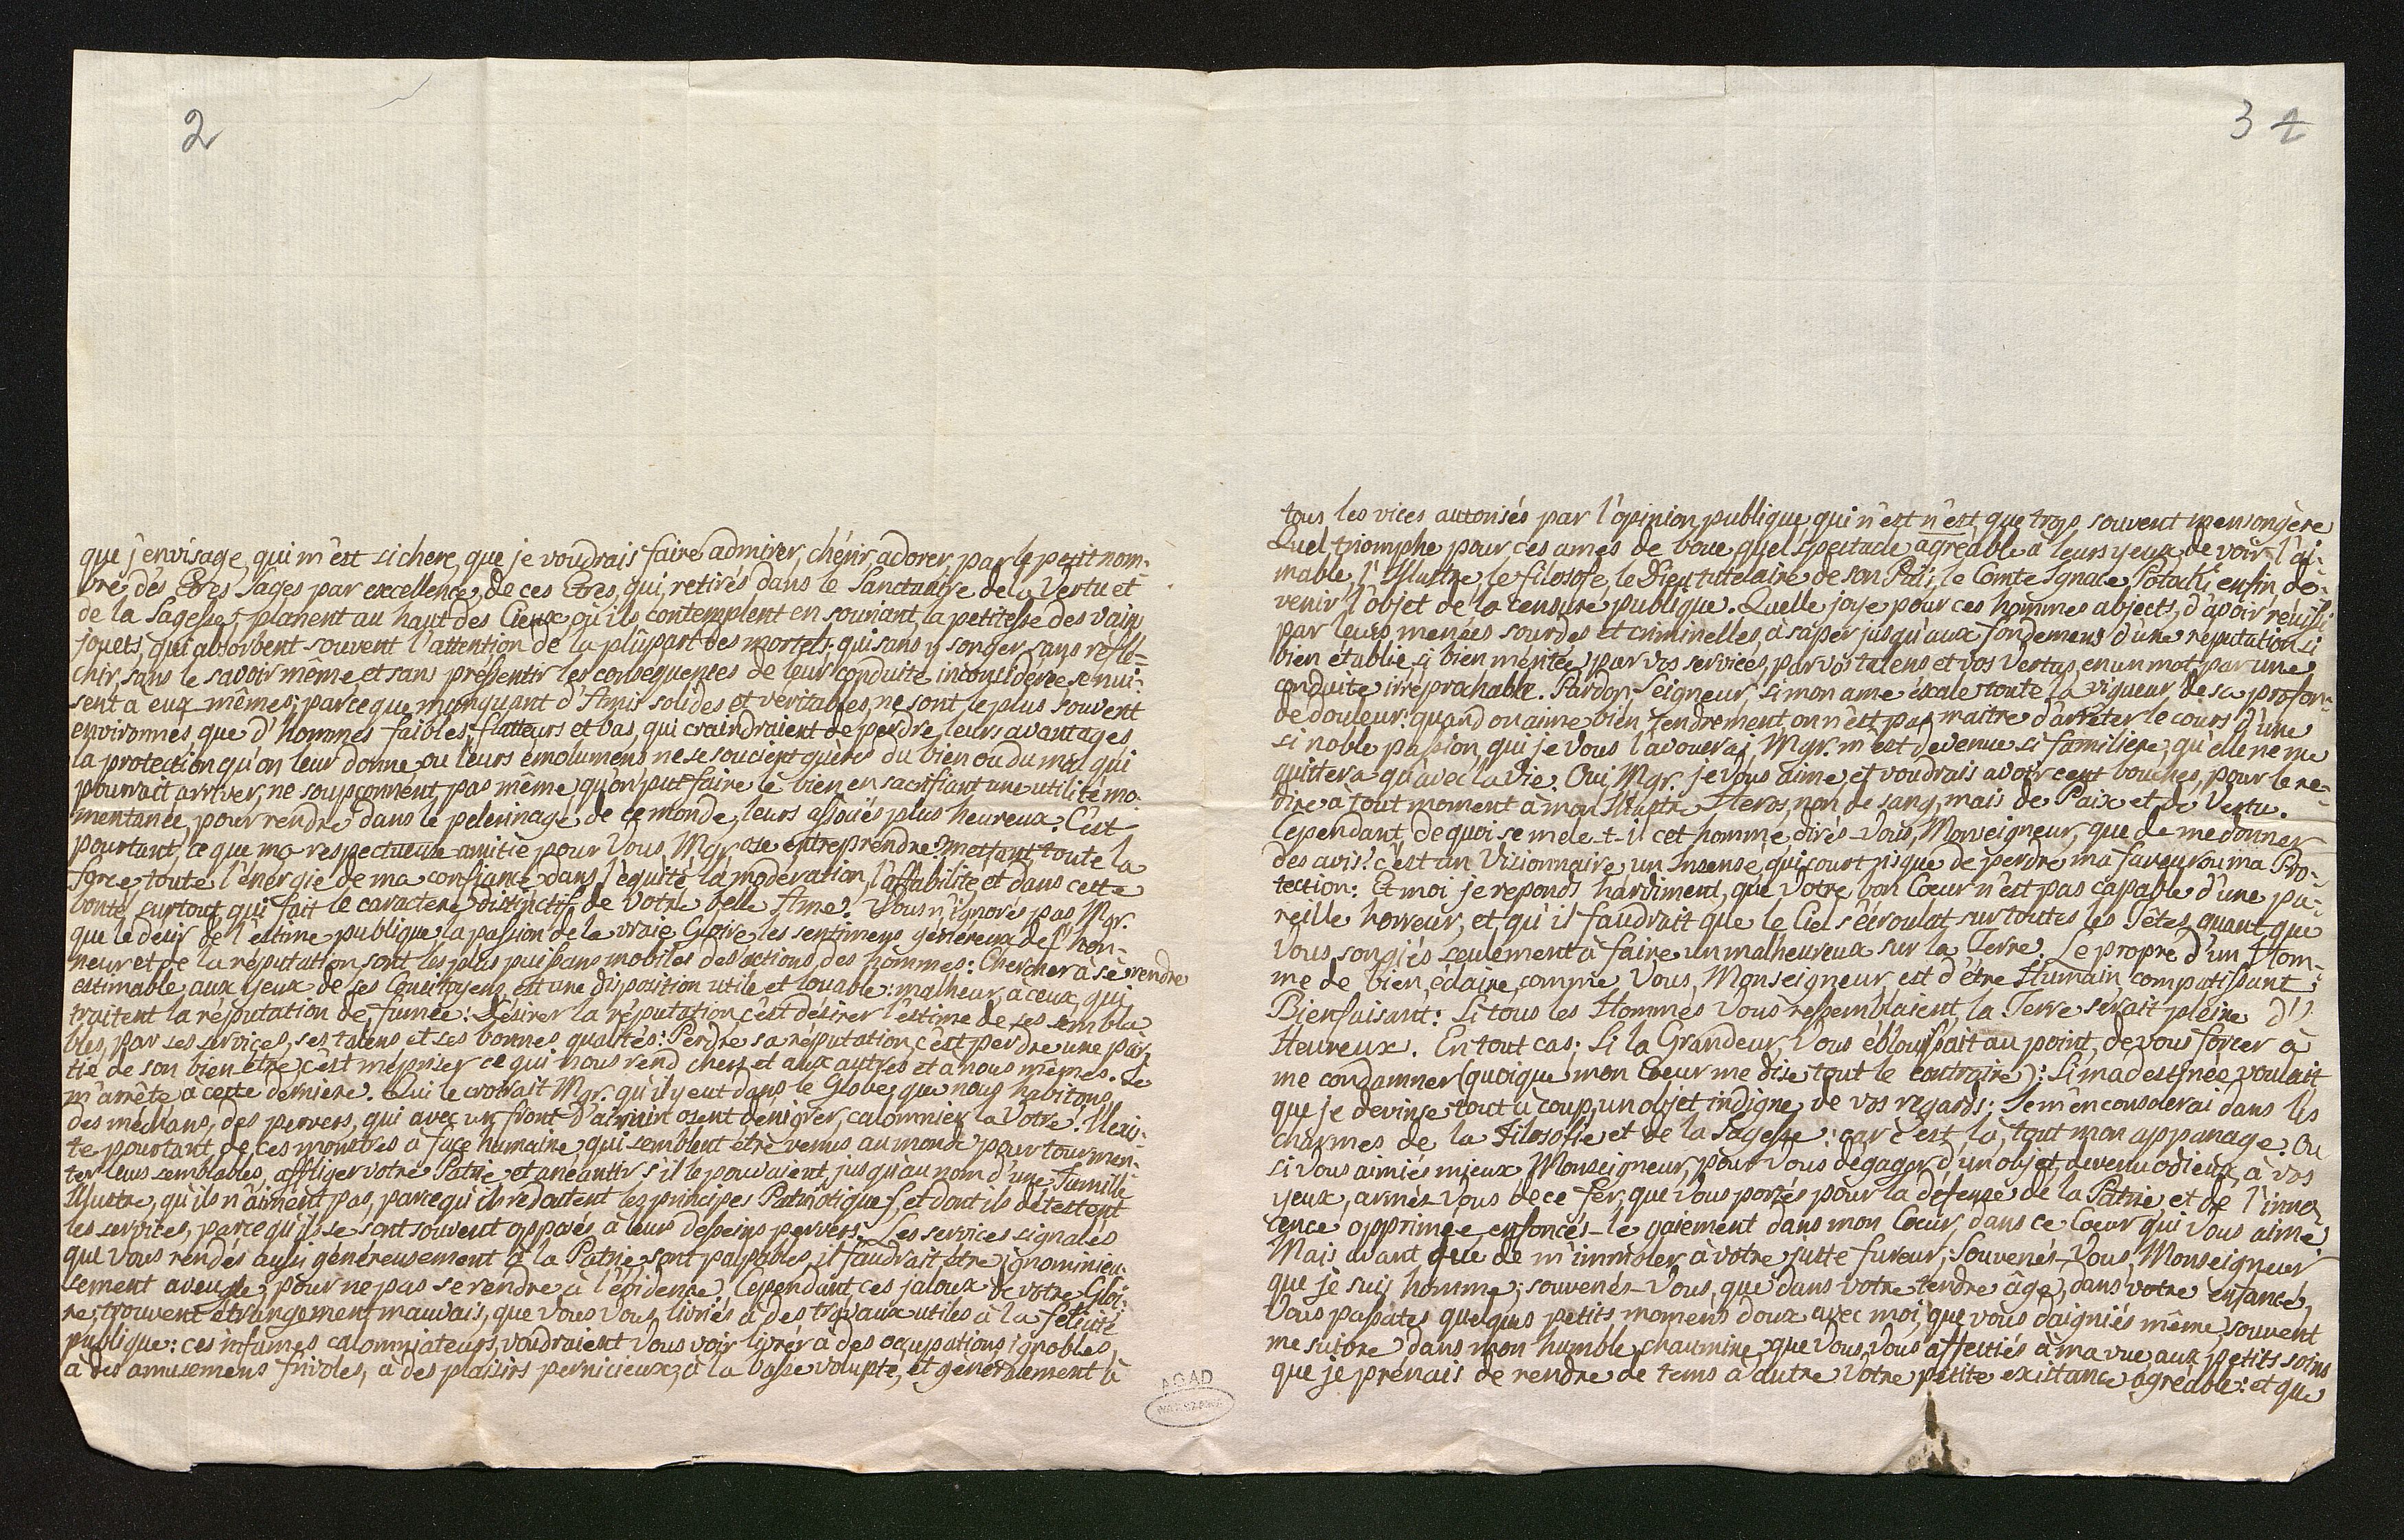 2
que j'envisage, qui m'est si chere, que je voudrais faire admirer, chérir, adorer, par le petit nom-
bre des Etres sages par excellence, de ces Etres, qui, retirés dans le Sanctuaire de la Vertu et
de la Sagesse, planent au haut des Cieux, où ils contemplent en souriant la petitesse des vain
jouets, qui absorbent souvent l'attention de la plûpart des mortels: qui sans y songer, sans réflé-
chir, sans le savoir même, et sans présentir les consequences de leur conduite inconsiderée se nui-
sent à eux mêmes; parceque manquant d'Amis solides et véritables, ne sont le plus souvent
environnés que d'hommes faibles, flatteurs et bas, qui craindraient de perdre leurs avantages
la protection qu'on leur donne ou leurs émolumens ne se soucient guères du bien ou du mal qui
pourrait arriver, ne soupçonnent pas même qu'on put faire le bien en sacrifiant une utilité mo-
mentanée, pour rendre dans le pelerinage de ce monde, leurs associés plus heureux. C'est
pourtant, ce que ma respectueuse amitié pour Vous, Mgr. ose entreprendre? mettant toute la
force, toute l'énergie de ma confiance dans l'équité, la modération, l'affabilité et dans cette
bonté surtout, qui fait le caractere distinctif de Votre belle Ame. Vous n'ignorés pas Mgr.
que le desir de l'estime publique, la passion de la vraie Gloire, les sentimens génereux de l'hon-
neur et de la réputation, sont les plus puissans mobiles des actions des hommes: Chercher à se rendre
estimable aux yeux de ses Concitoyens, est une disposition utile et louable: malheur, à ceux, qui
traitent la réputation de fumée! Désirer la réputation c'est désirer l'estime de ses sembla-
bles, par ses services, ses talens et ses bonnes qualités: Perdre sa réputation, c'est perdre une par-
tie de son bien être; c'est mépriser ce qui nous rend chers et aux autres et à nous mêmes. Je
m'arrête à cette derniere. Qui le croirait Mgr. qu'il y eut dans le Globe, que nous habitons,
des méchans, des pervers, qui avec un front d'airain osent dénigrer, calomnier la Votre! Il exis-
te pourtant, de ces monstres à face humaine, qui semblent être venus au monde pour tourmen-
ter leurs semblables, affliger votre Patrie et anéantir s'il le pouvaient, jusqu'au nom d'une Famille
Illustre, qu'ils n'aiment pas, parcequ'ils redoutent les principes Patriotiques, et dont ils détestent
les services, parcequ'ils se sont souvent opposés à leurs desseins pervers. Les services signalés
que Vous rendés aussi généreusement à la Patrie sont palpables, il faudrait être ignominieu-
sement aveugle, pour ne pas se rendre à l'évidence. Cependant, ces jaloux de votre Gloi-
re, trouvent étrangement mauvais, que Vous Vous livriés à des travaux utiles à la félicité
publique: ces infames calomniateurs, voudraient Vous voir livrer à des occupations ignobles,
à des amusemens frivoles, à des plaisirs pernicieux, à la basse volupté, et généralement à
AGAD
WARSZAWA
3 2
tous les vices autorisés par l'opinion publique qui n'est n'est que trop souvent mensongère
Quel triomphe pour ces ames de boue quel spectacle agréable à leurs yeux de voir l'ai-
mable, l'Illustre, le filosofe, le Dieu tutelaire de son Païs, le Comte Ignace Potocki enfin, de-
venir l'objet de la censure publique. Quelle joye pour ces hommes abjects, d'avoir réussi
par leurs menées sourdes et criminelles, à saper jusqu'aux fondemens d'une réputation si
bien établie, si bien méritée, par vos services, par vos talens et vos Vertus, en un mot, par une
conduite irréprochable. Pardon, Seigneur, si mon ame éxale toute la vigueur de sa profon-
de douleur: quand on aime bien tendrement, on n'est pas maitre d'arrêter le cours d'une
si noble passion, qui je Vous l'avouerai Mgr. m'est devenue si familiere, qu'elle ne me
quittera qu'avec la Vie. Oui, Mgr. je Vous aime, et voudrais avoir cent bouches, pour le re-
dire à tout moment à mon Illustre Heros, non de sang, mais de Paix et de Vertu.
Cependant, de quoi se mele-t-il cet homme, dirés-Vous, Monseigneur, que de me donner
des avis? c'est un Visionnaire, un Insensé, qui court risque de perdre ma faveur ou ma Pro-
tection: Et moi je reponds hardiment, que Votre bon Cœur n'est pas capable d'une pa-
reille horreur, et qu'il faudrait que le Ciel s'écroulat sur toutes les Têtes, avant que
Vous songiés seulement à faire un malheureux sur la Terre. Le propre d'un Hom-
me de bien, éclairé, comme Vous, Monseigneur, est d'être Humain, compatissant,
Bienfaisant: Si tous les Hommes Vous ressemblaient, la Terre serait pleine d'
Heureux. En tout cas; Si la Grandeur Vous éblouissait au point, de vous forcer à
me condamner (quoique mon Cœur me dise tout le contraire): Si ma destinée voulait,
que je devinse tout à coup, un objet indigne de vos regards; Je m'en consolerai dans les
charmes de la Filosofie et de la Sagesse: car c'est là, tout mon appanage. Ou
si Vous aimiés mieux Monseigneur, pour Vous dégager d'un objet, devenu odieux, à vos
yeux, armés-Vous de ce fer, que Vous portés pour la défense de la Patrie et de l'inno-
cence opprimée, enfoncés-le gaiement dans mon Cœur, dans ce Cœur qui Vous aime.
Mais avant que de m'immoler à votre juste fureur; Souvenés-Vous, Monseigneur
que je suis homme; souvenés-Vous, que dans votre tendre âge, dans votre enfance,
Vous passates quelques petits momens doux avec moi, que vous daigniés même souvent
me suivre dans mon humble chaumine, que Vous Vous affectiés à ma vue, aux petits soins
que je prenais de rendre de tems à autre Votre petite existance agréable: et que